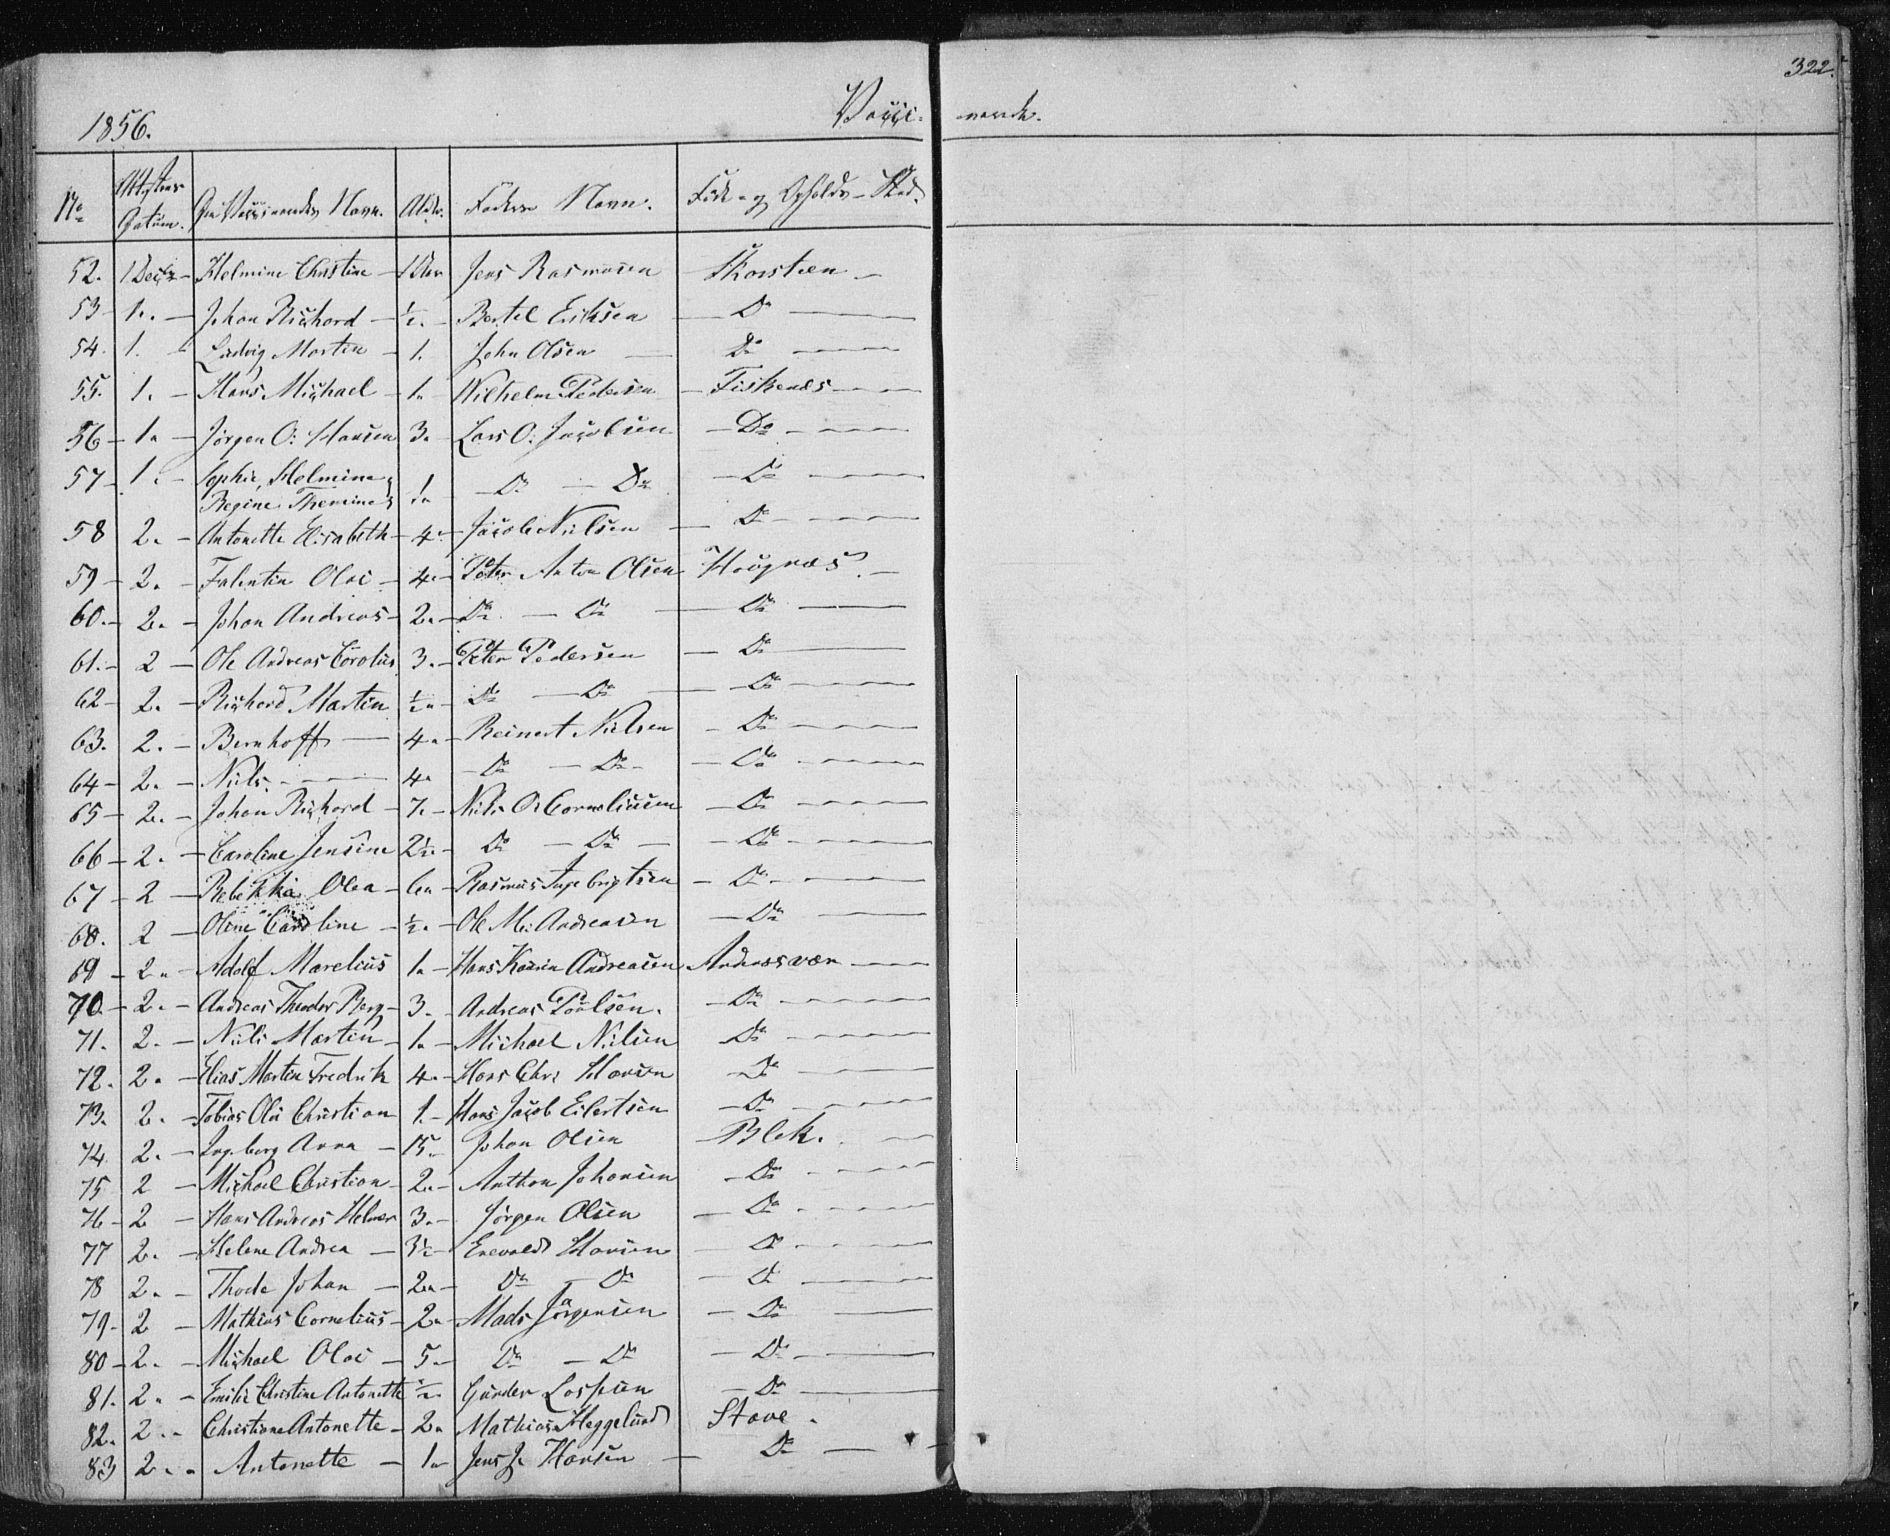 322.
1856. Vacci- nerede.
No Attestens Datum. De Vaccineredes Navn. Alder. Faderens Navn. Føde- og Opholds-Sted.
52. 1 Decbr Helmine Christine - 1 Jens Rasmusen - Skorsteen -
53 - 1. - Johan Richard - ½. - Bertel Eriksen - Do -
54. 1. - Ludvig Martin - 1. John Olsen - Do -
55. 1. - Hans Michael - 1. Wilhelm Pedersen - Fiskenæs -
56 - 1. - Jørgen O: Hansen 3. Lars O: Jacobsen - Do -
57 - 1. - Sophie, Helmine
Regine 1. - Do - Do - Do -
58 2. - Antonette Elisabeth - 4 - Jacob Nielsen - Do -
59 - 2. - Falentin Olai - 4. - Peter Anton Olsen Hougnæs. -
60. - 2. - Johan Andreas - 2. - Do - Do - Do -
61. - 2 - Ole Andreas Corolius 3. - Peter Pedersen - Do -
62 - 2. - Richard Martin ½. Do - Do - Do -
63. 2. - Bernhoff - 4. - Reinert Nielsen - Do -
64 - 2. - Niels. - 4. - Do - Do - Do -
65 - 2. - Johan Richard - 7. - Niels O: Corneliusen - Do -
66 - 2. - Caroline Jensine 2½ - Do - Do - Do -
67 - 2 - Rebekka Olea - 6. - Rasmus Ingebrigtsen - Do -
68. 2 - Oline Caroline - ½. - Ole M: Andreasen - Do -
69 - 2. - Adolf Marelius 1. - Hans Andreasen Andersvær -
70. - 2. - Andreas Theodor Berg - 3. - Andreas Poulsen. - Do -
71. 2. - Niels Martin - 1. - Michael Nielsen - Do -
72. 2. - Elias Martin Fredrik 4. - Hans Chr: Hansen - Do -
73. 2. - Tobias Olai Christian 1. - Hans Jacob Eilertsen - Do -
74. 2. - Ingeborg Anna - 15. Johan Olsen - Blek. -
75 2 - Michael Christian - 2. - Anthon Johansen - Do -
76 - 2 - Hans Andreas Helmer 3. - Jørgen Olsen - Do -
77 2. - Helene Andrea - 3½ - Enevold Hansen - Do -
78 2. - Thode Johan - 2. - Do - Do - Do -
79 - 2 - Mathias Cornelius - 2. - Mads Jørgensen - Do -
80 - 2. - Michael Olai - 5. - Do - Do - Do -
81. 2. - Emilie Christine Antonette ½. Gunder - Do -
82. 2. - Christiane Antonette - 2. Mathias Heggelund Stave.
83 2. - Antonette - 1. Jens J. Hansen - Do -